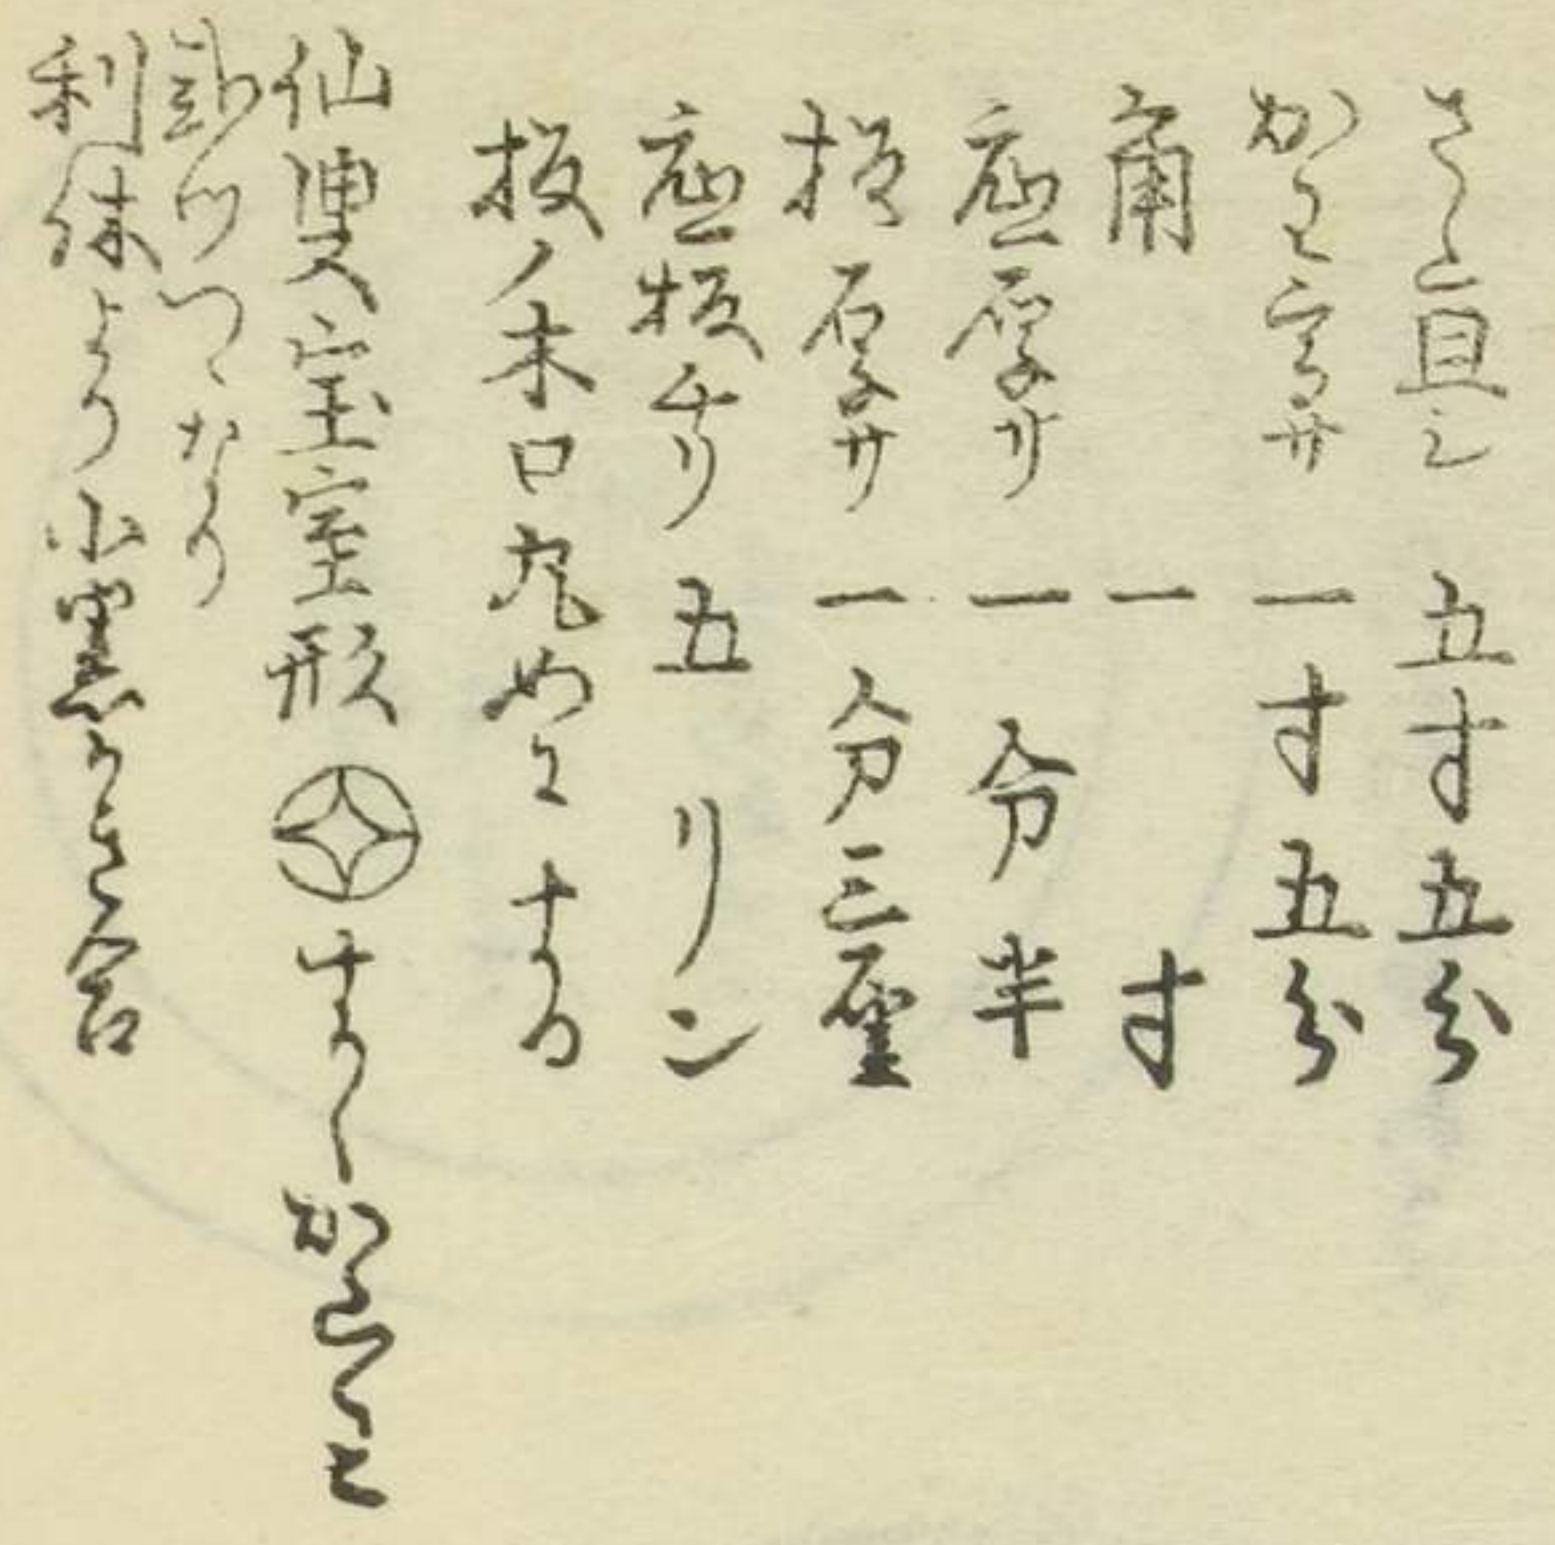 さし亘し 五寸五分
かわ高サ 一寸五分
角 一寸
底厚サ 一分半
板厚サ 一分三厘
底板チリ 五リン
板ノ木口丸めにする
仙叟宝室形 すかし かん
四ツつゝなり
利休より小 かき合